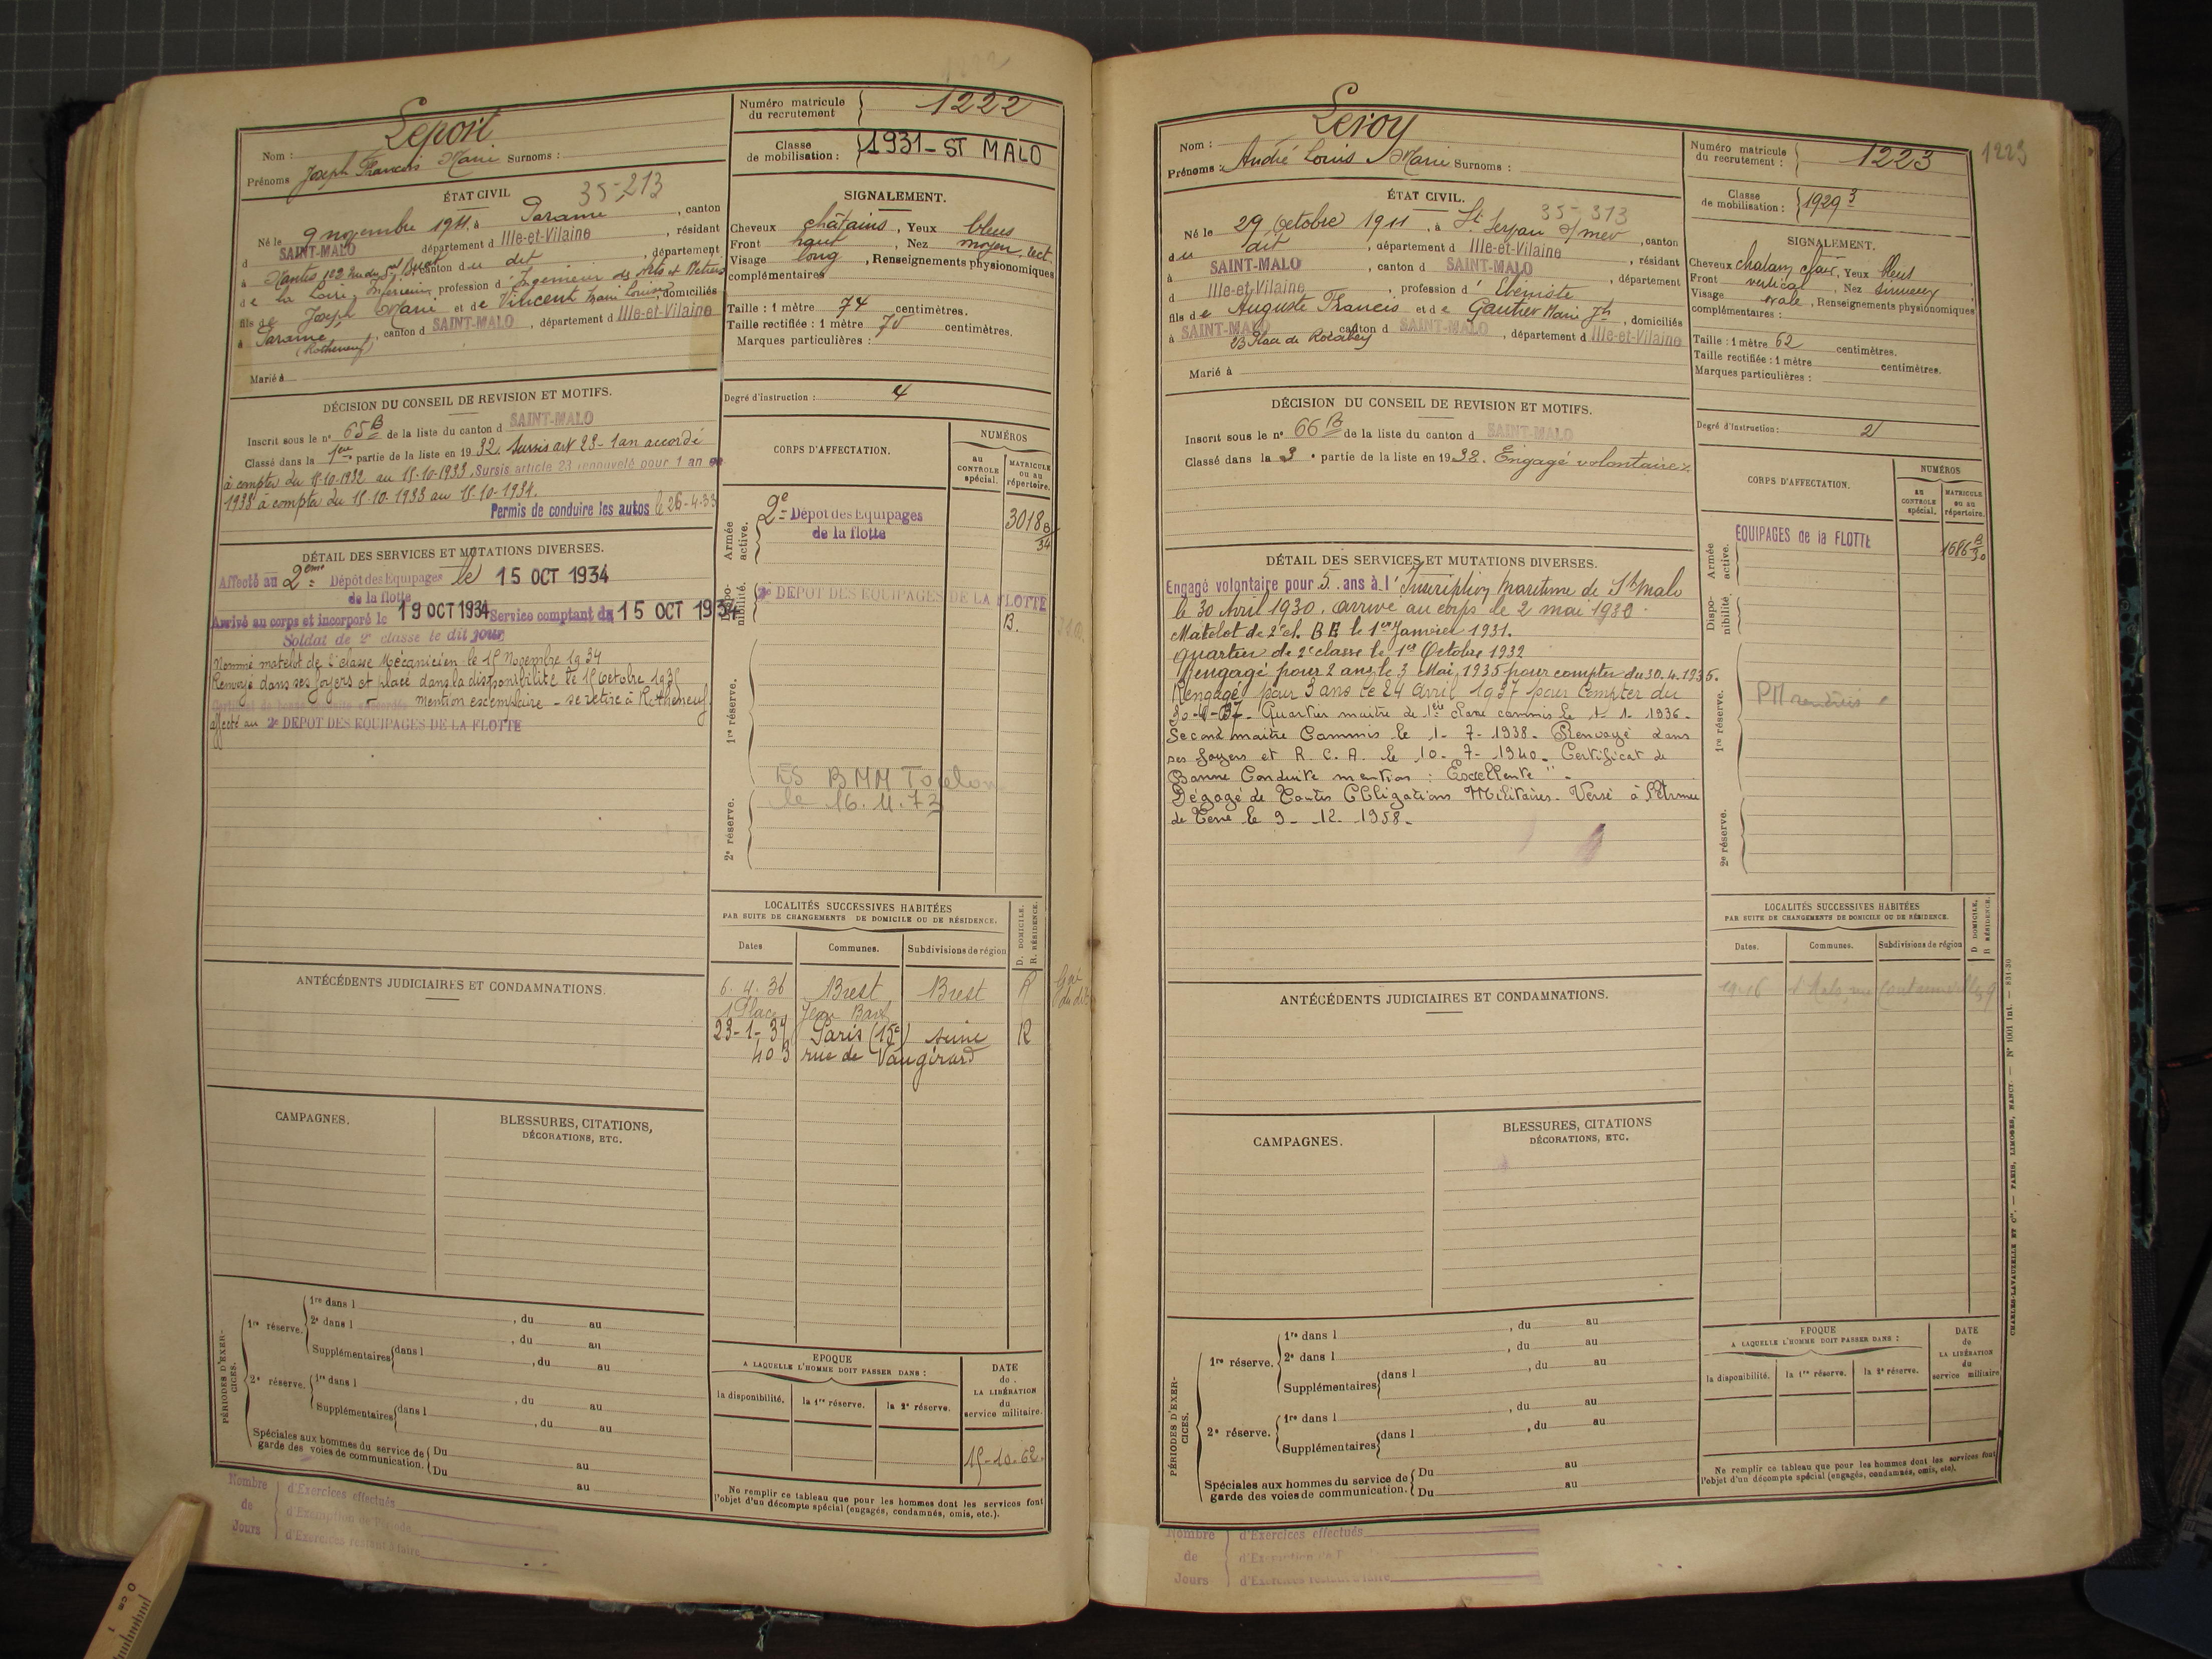 1222
Nom : Leport
Prénoms Joseph Francois Marie Surnoms :
Numéro matricule du recrutement 1222
Classe de mobilisation : 1931 - ST MALO
ÉTAT CIVIL 35-213
Né le 9 novembre 1911 à Parame, canton
d SAINT-MALO département d Ille-et-Vilaine, résidant
à Nantes 122 rue du canton du dit, département
de la Loire Inférieure, profession d'Ingenieur des Arts et Metiers
fils de Joseph Marie et de Vincent Marie Louise, domiciliés
à Parame, canton d SAINT-MALO, département d Ille-et-Vilaine
(Rotheneuf)
Marié à
SIGNALEMENT.
Cheveux châtains, Yeux bleus
Front haut, Nez moyen, rect.
Visage long, Renseignements physionomiques
complémentaires
Taille : 1 mètre 74 centimètres.
Taille rectifiée : 1 mètre 75 centimètres.
Marques particulières :
Degré d'instruction : 4
DÉCISION DU CONSEIL DE REVISION ET MOTIFS.
Inscrit sous le n° 65 B de la liste du canton d SAINT-MALO
Classé dans la 1ere partie de la liste en 1932. Sursis art 23 - 1 an accordé
à compter du 15-10-1932 au 15-10-1933. Sursis article 23 renouvelé pour 1 an en
1933 à compter du 15-10-1933 au 15-10-1934.
Permis de conduire les autos le 26-4-33
DÉTAIL DES SERVICES ET MUTATIONS DIVERSES.
Affecté au 2eme Dépôt des Equipages le 15 OCT 1934
de la flotte
Arrivé au corps et incorporé le 19 OCT 1934 Service comptant du 15 OCT 1934
Soldat de 2e classe le dit jour
Nommé matelot de 2e classe Mécanicien le 15 Novembre 1934
Renvoyé dans ses foyers et placé dans la disponibilité le 15 Octobre 1935
mention exemplaire - se retire à Rotheneuf
affecté au 2e DEPOT DES EQUIPAGES DE LA FLOTTE
CORPS D'AFFECTATION.
NUMÉROS
AU CONTROLE spécial.
MATRICULE ou au répertoire.
Armée active.
2e Dépôt des Equipages
de la flotte
3018 B
34
Disponibilité.
2e DEPOT DES EQUIPAGES DE LA FLOTTE
B.
1re réserve.
ES BMM Toulon
le 16.11.73
2e réserve.
LOCALITÉS SUCCESSIVES HABITÉES
PAR SUITE DE CHANGEMENTS DE DOMICILE OU DE RÉSIDENCE.
D. DOMICILE. R. RÉSIDENCE.
Dates Communes. Subdivisions de région
6.4.36 Brest Brest R
1 Place Jean Bart
23-1-37 Paris (15e) seine R
403 rue de Vaugirard
ANTÉCÉDENTS JUDICIAIRES ET CONDAMNATIONS.
CAMPAGNES.
BLESSURES, CITATIONS,
DÉCORATIONS, ETC.
PÉRIODES D'EXERCICES.
1re réserve.
1re dans l , du au
2e dans l , du au
Supplémentaires dans l , du au
2e réserve.
1re dans l , du au
Supplémentaires dans l , du au
Spéciales aux hommes du service de garde des voies de communication.
Du au
Du au
EPOQUE
A LAQUELLE L'HOMME DOIT PASSER DANS :
la disponibilité. la 1re réserve. la 2e réserve.
DATE de LA LIBÉRATION du service militaire.
15-10-62.
Ne remplir ce tableau que pour les hommes dont les services font
l'objet d'un décompte spécial (engagés, condamnés, omis, etc.).
Nombre de Jours
d'Exercices effectués
d'Exemption de Période
d'Exercices restant à faire
Nom : Leroy
Prénoms : André Louis Marie Surnoms :
Numéro matricule du recrutement : 1223
1223
Classe de mobilisation : 1929 3
ÉTAT CIVIL. 35-313
Né le 29 Octobre 1911, à St Servan s/mer, canton
du dit, département d Ille-et-Vilaine, résidant
à SAINT-MALO, canton d SAINT-MALO, département
d Ille-et-Vilaine, profession d'Ebéniste
fils de Auguste Francis et de Gautier Marie Jh, domiciliés
à SAINT-MALO canton d SAINT-MALO, département d Ille-et-Vilaine
23 Place de Rocabey
Marié à
SIGNALEMENT.
Cheveux chatain clair, Yeux bleus
Front vertical, Nez sinueux
Visage ovale, Renseignements physionomiques
complémentaires :
Taille : 1 mètre 62 centimètres.
Taille rectifiée : 1 mètre centimètres.
Marques particulières :
Degré d'instruction : 2
DÉCISION DU CONSEIL DE REVISION ET MOTIFS.
Inscrit sous le n° 66 B de la liste du canton d SAINT-MALO
Classé dans la 3e partie de la liste en 1932. Engagé volontaire.
DÉTAIL DES SERVICES ET MUTATIONS DIVERSES.
Engagé volontaire pour 5 ans à l'Inscription Maritime de St Malo
le 30 Avril 1930, arrivé au corps le 2 mai 1930.
Matelot de 2e cl. BE le 1er Janvier 1931.
Quartier de 2e classe le 1er Octobre 1932
Rengagé pour 2 ans le 3 Mai 1935 pour compter du 30.4.1935.
Rengagé pour 3 ans le 24 avril 1937 pour compter du
30-4-37. Quartier maitre de 1ère classe commis le 1-1-1936.
Second maitre Commis le 1-7-1938. Renvoyé dans
ses foyers et R.C.A. le 10-7-1940. Certificat de
Bonne Conduite mention : Excellente".
Dégagé de Toutes Obligations Militaires. Versé à l'Armée
de Terre le 9-12-1958.
CORPS D'AFFECTATION.
NUMÉROS
AU CONTROLE spécial.
MATRICULE ou au répertoire.
Armée active.
EQUIPAGES de la FLOTTE
1686 B
30
Disponibilité.
1re réserve.
2e réserve.
LOCALITÉS SUCCESSIVES HABITÉES
PAR SUITE DE CHANGEMENTS DE DOMICILE OU DE RÉSIDENCE.
D. DOMICILE. R. RÉSIDENCE.
Dates. Communes. Subdivisions de région
ANTÉCÉDENTS JUDICIAIRES ET CONDAMNATIONS.
CAMPAGNES.
BLESSURES, CITATIONS
DÉCORATIONS, ETC.
PÉRIODES D'EXERCICES.
1re réserve.
1re dans l , du au
2e dans l , du au
Supplémentaires dans l , du au
2e réserve.
1re dans l , du au
Supplémentaires dans l , du au
Spéciales aux hommes du service de garde des voies de communication.
Du au
Du au
EPOQUE
A LAQUELLE L'HOMME DOIT PASSER DANS :
la disponibilité. la 1re réserve. la 2e réserve.
DATE de LA LIBÉRATION du service militaire
Ne remplir ce tableau que pour les hommes dont les services font
l'objet d'un décompte spécial (engagés, condamnés, omis, etc).
Nombre de Jours
d'Exercices effectués
d'Exercices restant à faire
CHARLES-LAVAUZELLE ET Cie. — PARIS, LIMOGES, NANCY. — N° 1001 int. — 831-30
0 cm 1